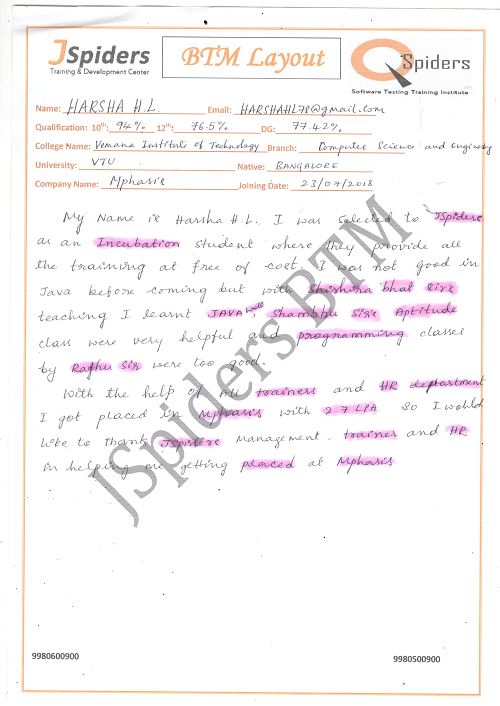 JSpiders
Training & Development Center
BTM Layout
QSpiders
Software Testing Training Institute
Name: HARSHA H.L. Email: HARSHAHL78@gmail.com
Qualification: 10th: 94% 12th: 76.5% DG: 77.42%
College Name: Vemana Institute of Technology Branch: Computer Science and Engineering
University: VTU Native: BANGALORE
Company Name: Mphasis Joining Date: 23/07/2018
My Name is Harsha H L. I was selected to JSpiders
as an Incubation student where they provide all
the training at free of cost. I was not good in
Java before coming but with Shishira bhat Sir's
teaching I learnt JAVA well, Shambhu Sir's Aptitude
class were very helpful and programming classes
by Raghu Sir were too good.
With the help of All trainers and HR department
I got placed in Mphasis with 2.7 LPA So I would
like to thank JSpiders Management. trainer and HR
in helping me getting placed at Mphasis
JSpiders BTM
9980600900 9980500900